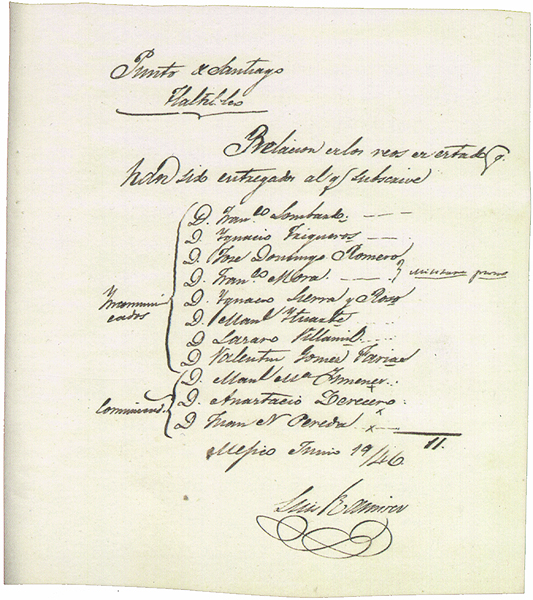 Punto de Santiago
Tlaltelco
Relacion de los reos de estado q.
han sido entregados al q. subscrive
D. Fran.co Lombardo
D. Ygnacio Trigueros
D. Jose Domingo Romero
D. Fran.co Mora
D. Ygnacio Sierra y Roso
D. Man.l Yturbe
D. Lazaro Villamil
D. Valentin Gomez Farias
Yncomuni
cados
D. Man.l M.a Gimenez
D. Anastacio Zerecero
D. Juan N Pereda
Comunicad.
11.
Mejico Junio 19/46.
Luis Ramirez